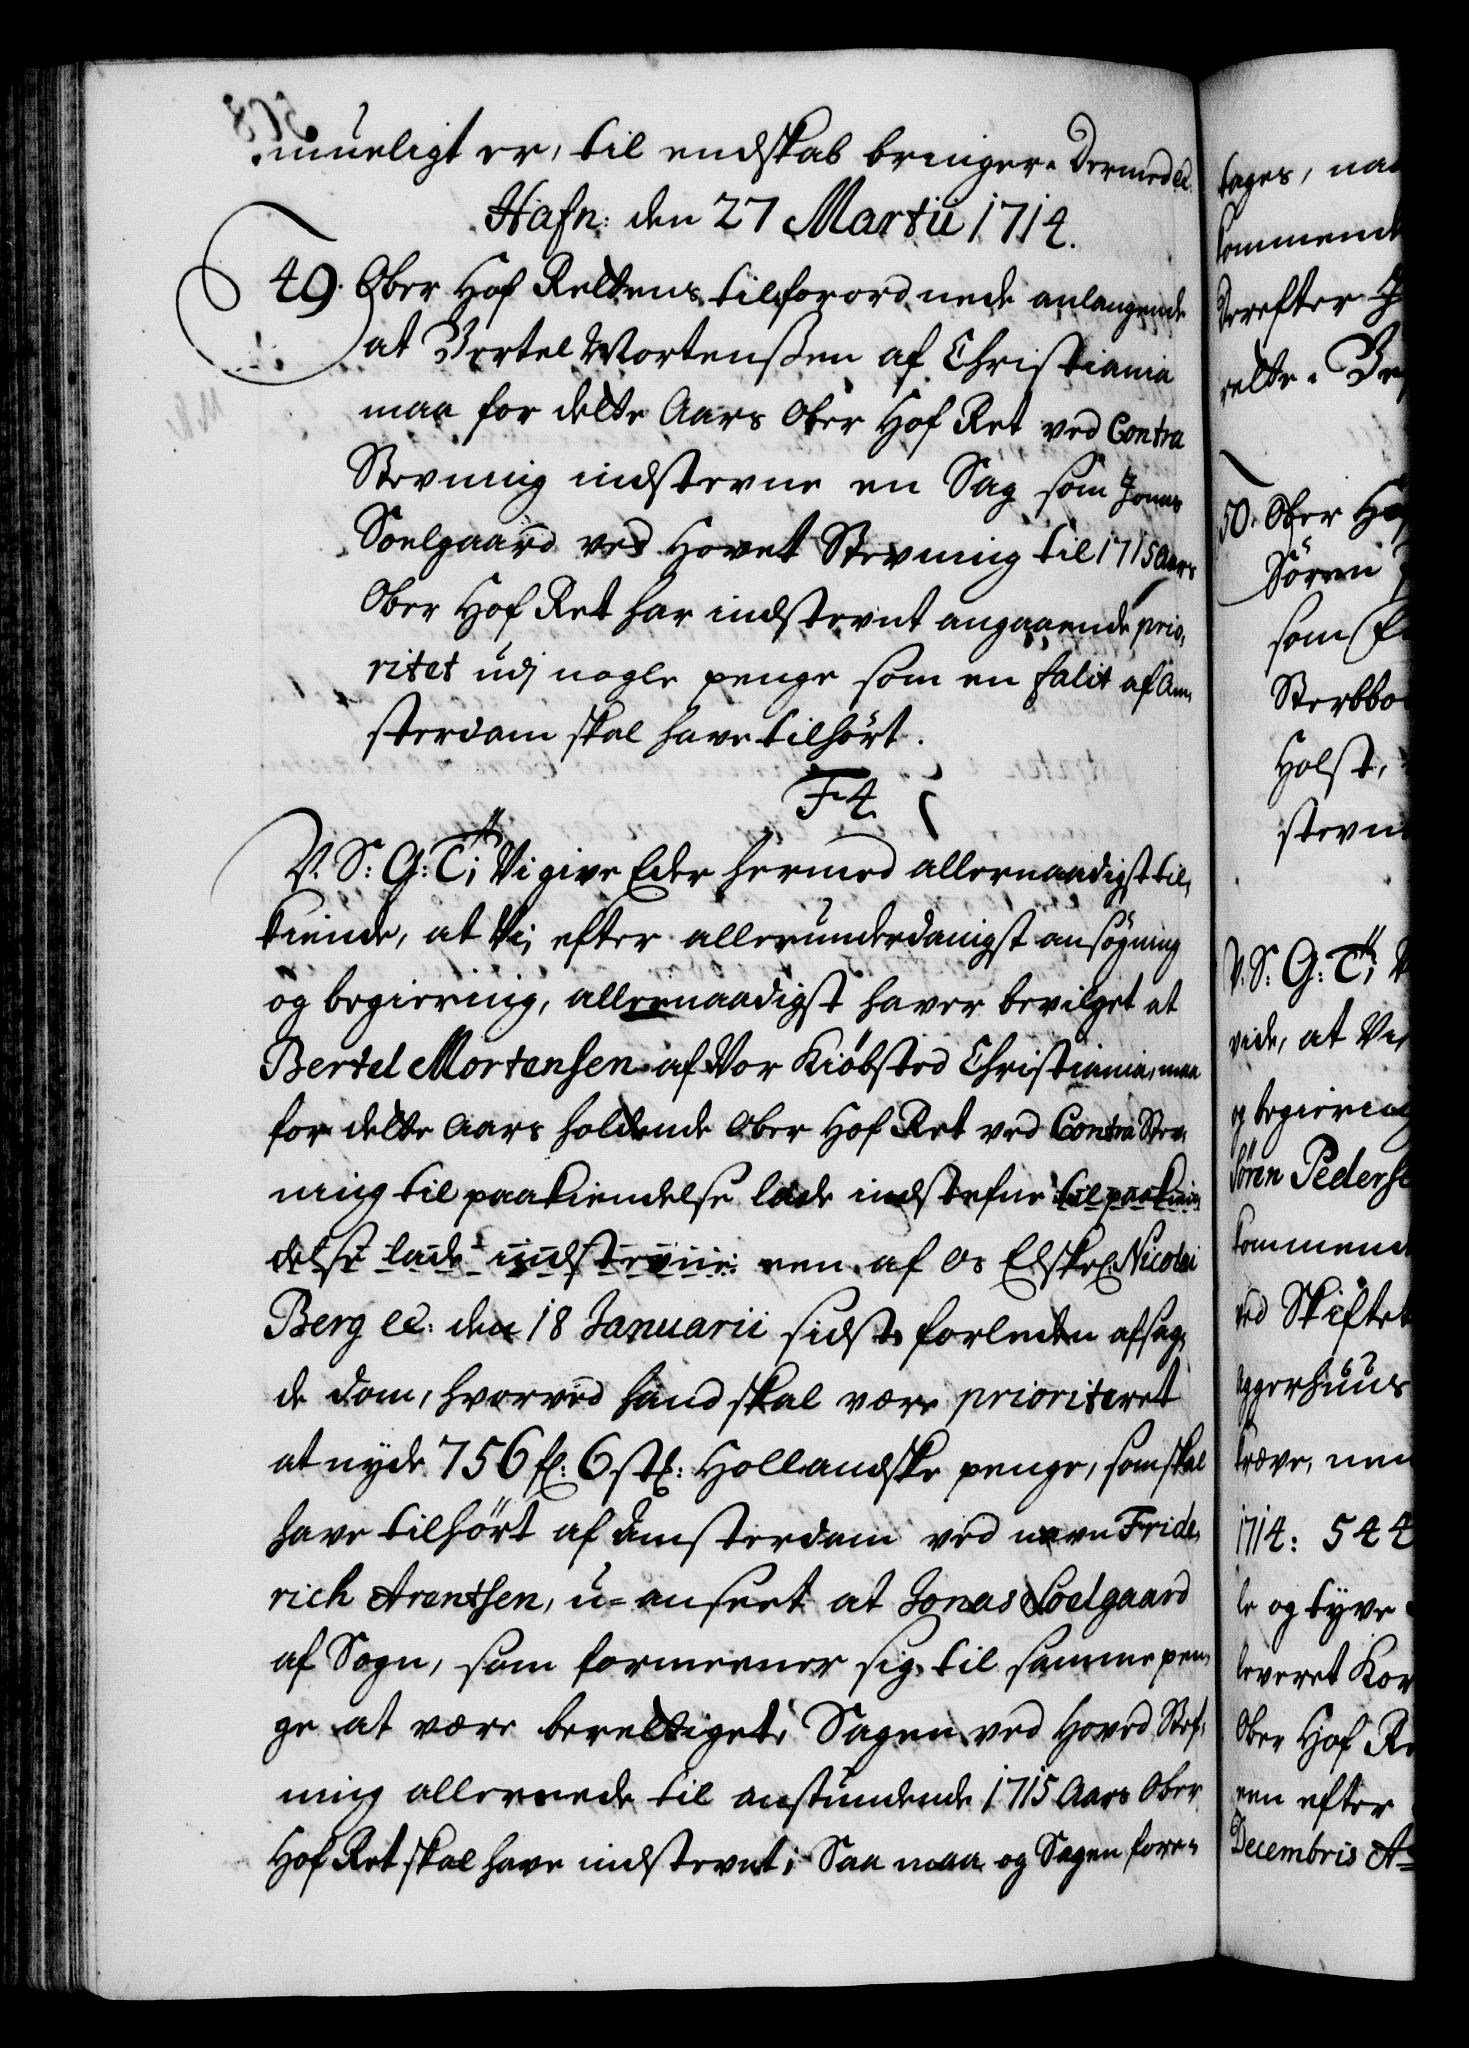 mueligt er, til endskab bringer. Dermed etc.
Hafn: den 27 Martii 1714.
49. Ober Hof Rettens tilforordnede anlangende
at Bertel Mortenssen af Christiania
maa for dette Aars Ober Hof Ret ved Contra
Stevning indstevne en Sag som Jonas
Soelgaard ved Hovet Stevning til 1715 Aars
Ober Hof Ret har indstevnt angaaende prio-
ritet udj nogle penge som en falit af Am-
sterdam skal have tilhört.
F4.
V. S: G: T; Vi give Eder hermed allernaadigst til-
kiende, at Vi, efter allerunderdanigst ansögning
og begiering, allernaadigst haver bevilget at
Bertel Mortensen af Vor Kiöbsted Christiania, maa
for dette Aars holdende Ober Hof Ret ved Contra Stev-
ning til paakiendelse lade indstefne til paakien-
delse lade indstevne een af os Elskel: Nicolai
Berg etc: den 18 Januarii sidst forleden afsag-
de dom, hvorved hand skal være prioriteret
at nyde 756 fl: 6 st: Hollandske penge, som skal
have tilhört af Amsterdam ved navn Fride-
rich Arentsen, u-anseet at Jonas Soelgaard
af Sogn, som formeener sig til samme pen-
ge at være berettiget, Sagen ved Hoved Stef-
ning allereede til anstundende 1715 Aars Ober
Hof Ret skal have indstevnt; Saa maa og Sagen fore-
tages, naa
kommende
Derefter
rette. Be
50. Ober Ho
Sören
som
Sterbbo
Holst,
stevn
V. S: G: T; V
vide, at Vi
og begiering
Sören Peders
kommend
ved Skiftet
Aggerhuus
kræve, nem
1714: 544
le og tyve
leveret Kor
Ober Hof Re
een efter
Decembris A